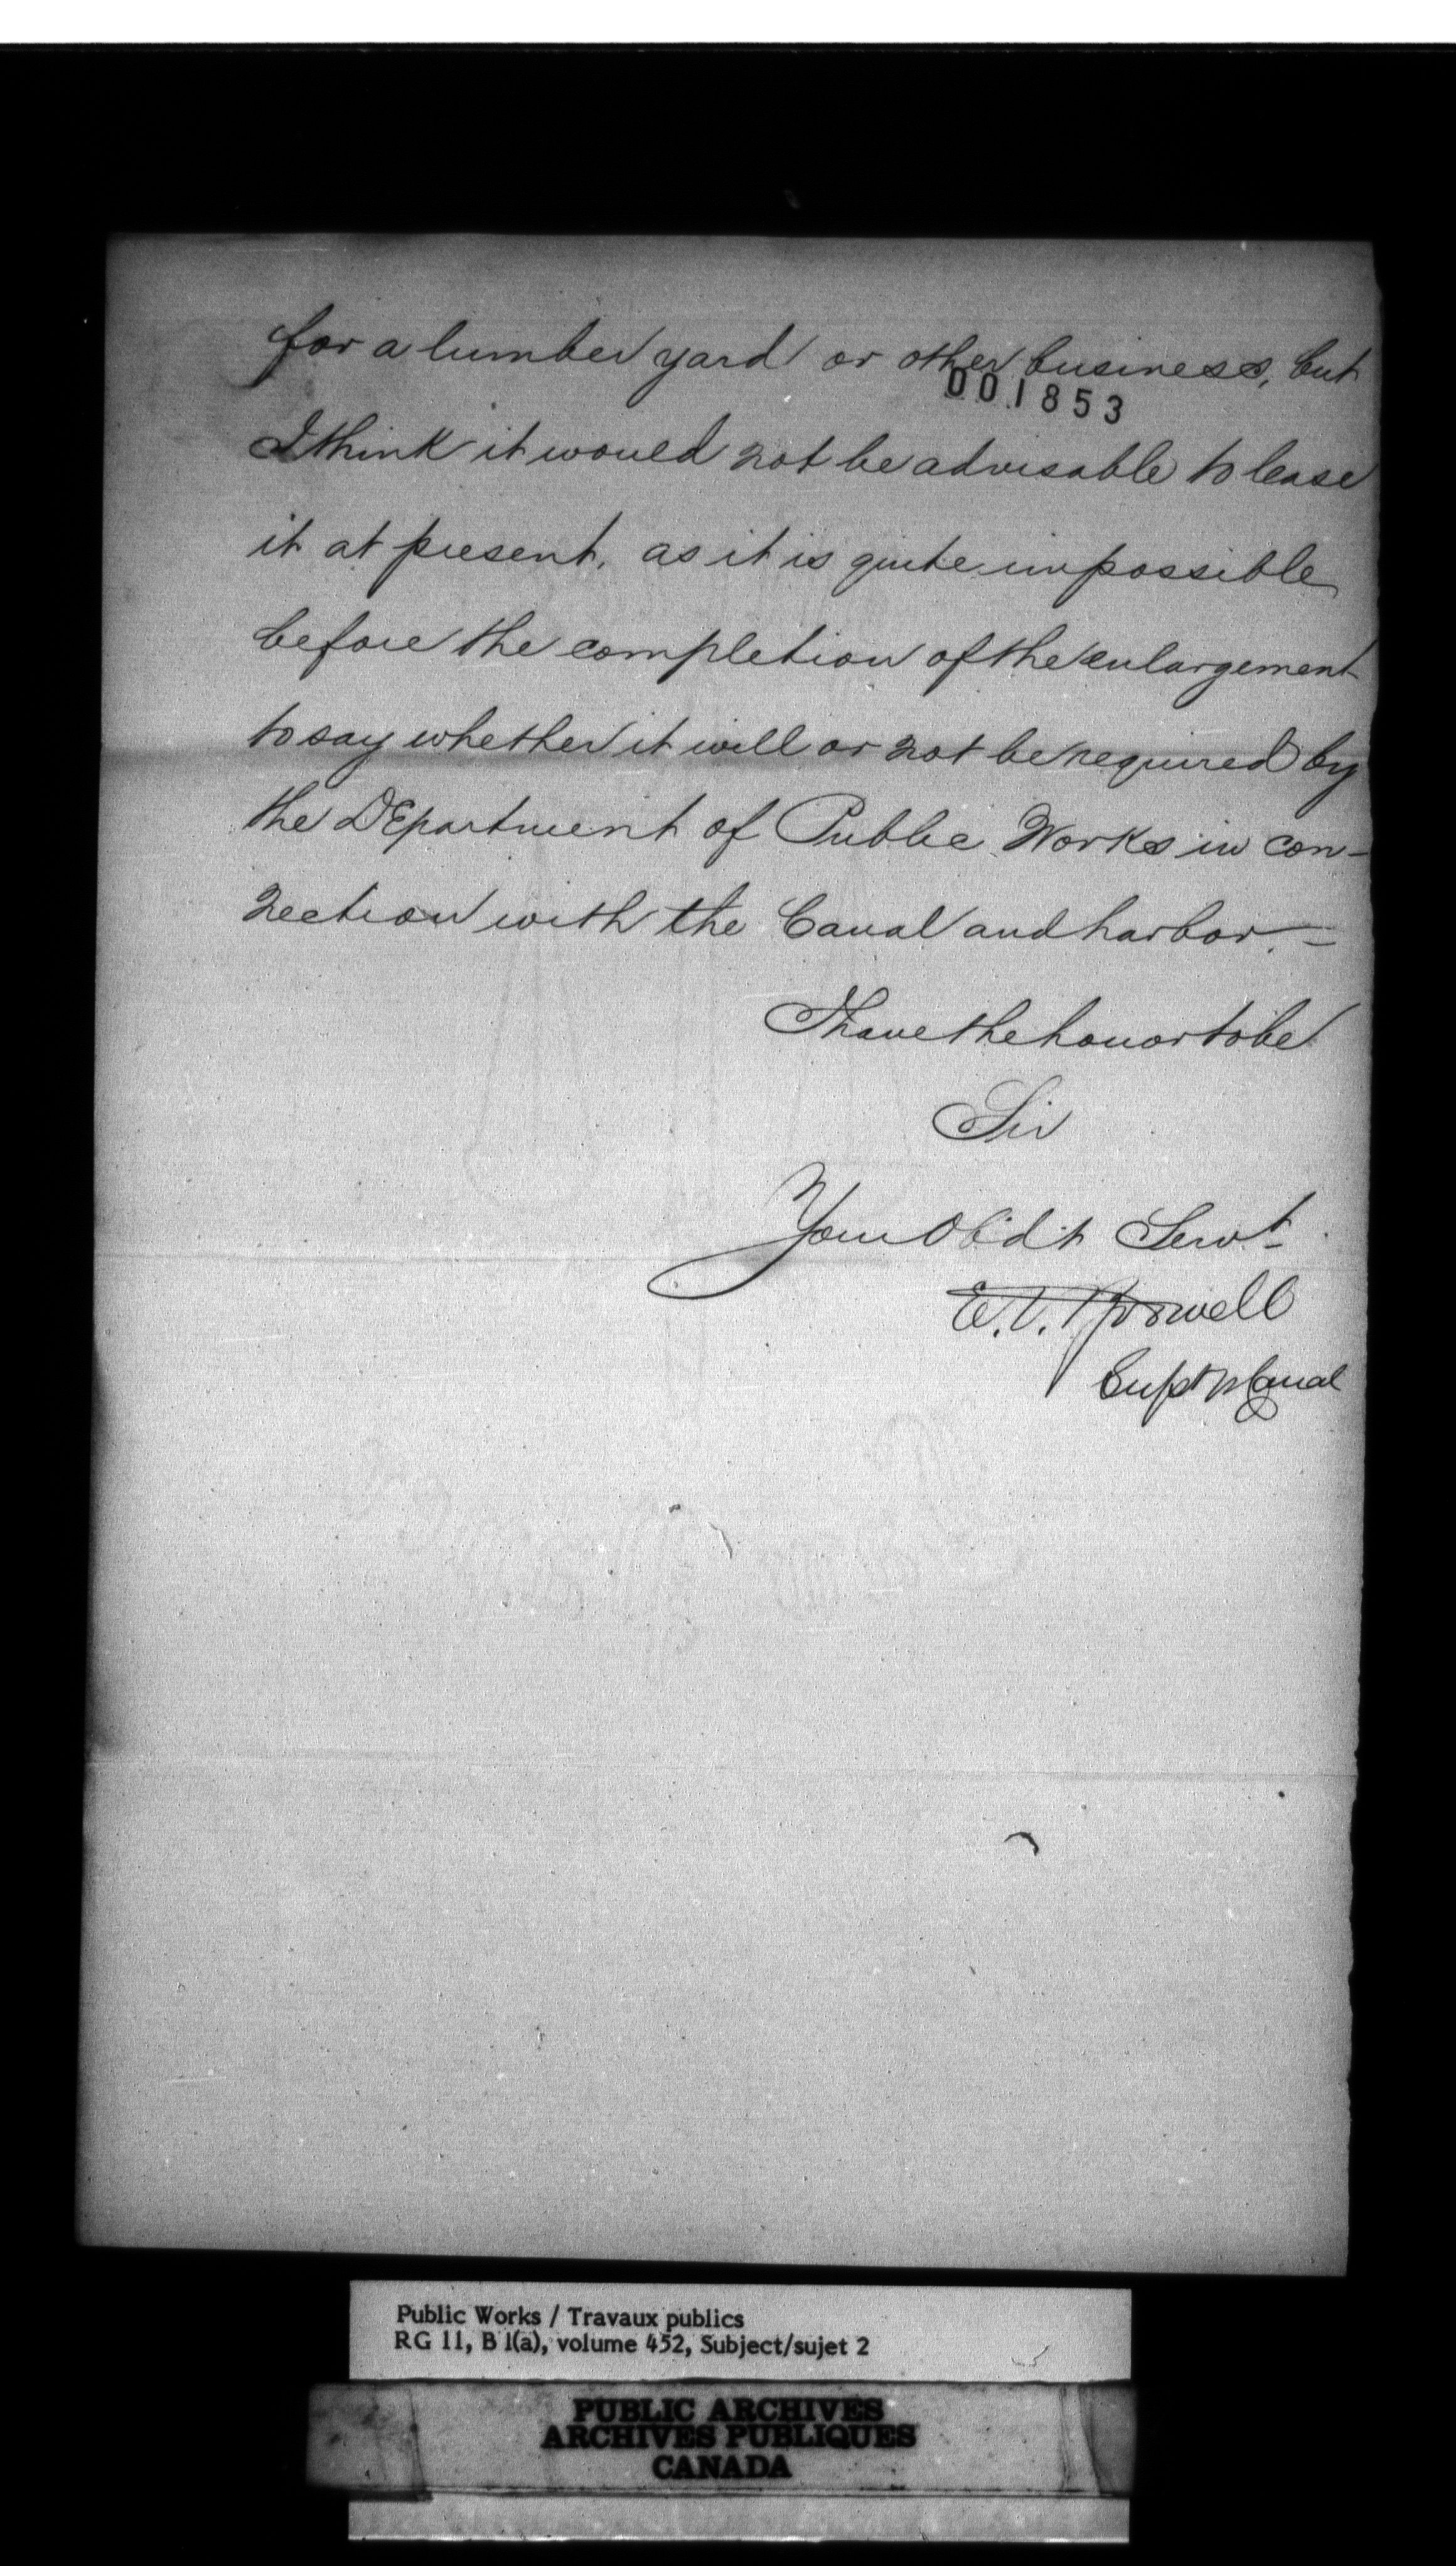 for a lumber yard or other business, but
001853
I think it would not be advisable to lease
it at present, as it is quite impossible
before the completion of the enlargement
to say whether it will or not be required by
the Department of Public Works in con-
nection with the Canal and harbor. —
I have the honor to be
Sir
Your Obd't Servt
E. V. Bodwell
Supt W Canal
Public Works / Travaux publics
RG 11, B 1(a), volume 452, Subject/sujet 2
PUBLIC ARCHIVES
ARCHIVES PUBLIQUES
CANADA